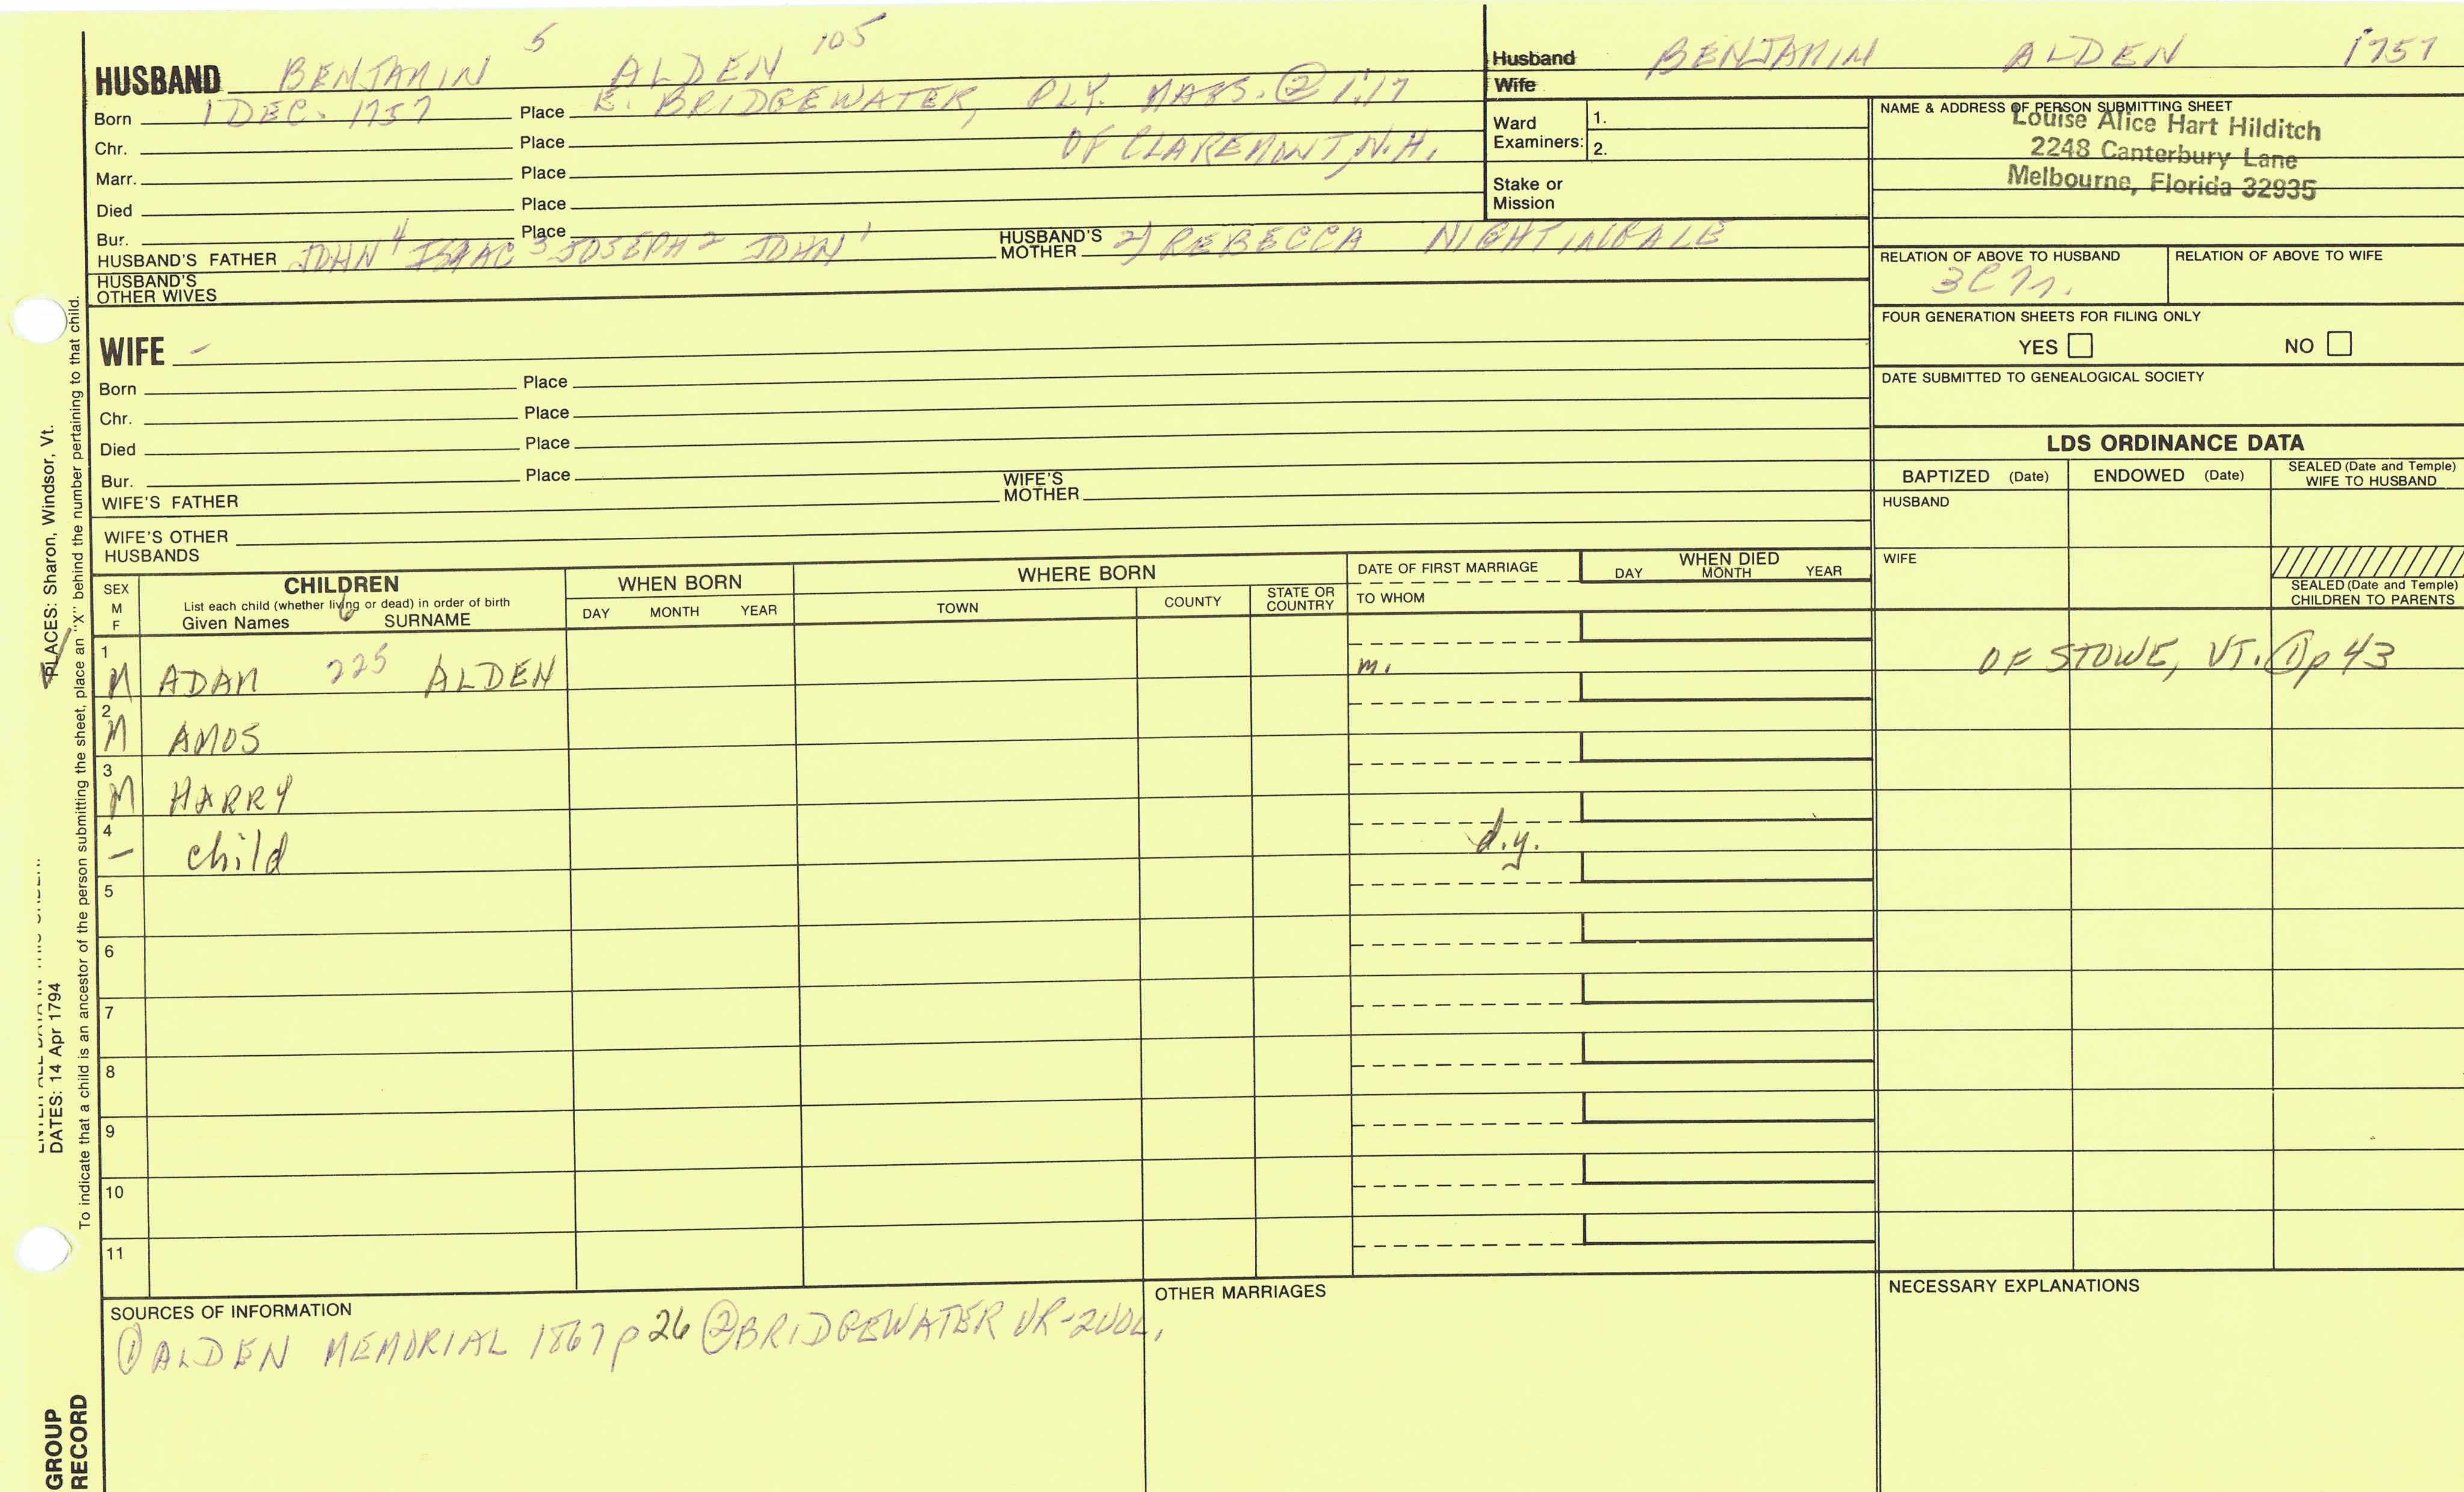 HUSBAND BENJAMIN 5 ALDEN 105
Born 1 DEC. 1757 Place E. BRIDGEWATER, PLY. MASS. ② 1:17
Chr. Place OF CLAREMONT, N.H.
Marr. Place
Died Place
Bur. Place
HUSBAND'S FATHER JOHN 4 ISAAC 3 JOSEPH 2 JOHN 1 HUSBAND'S MOTHER 2) REBECCA NIGHTINGALE
HUSBAND'S OTHER WIVES
Husband BENJAMIN ALDEN 1757
Wife
Ward Examiners: 1.
2.
Stake or Mission
NAME & ADDRESS OF PERSON SUBMITTING SHEET
Louise Alice Hart Hilditch
2248 Canterbury Lane
Melbourne, Florida 32935
RELATION OF ABOVE TO HUSBAND RELATION OF ABOVE TO WIFE
FOUR GENERATION SHEETS FOR FILING ONLY
YES NO
DATE SUBMITTED TO GENEALOGICAL SOCIETY
WIFE -
Born Place
Chr. Place
Died Place
Bur. Place
WIFE'S FATHER WIFE'S MOTHER
WIFE'S OTHER HUSBANDS
LDS ORDINANCE DATA
BAPTIZED (Date) ENDOWED (Date) SEALED (Date and Temple) WIFE TO HUSBAND
HUSBAND
WIFE
SEALED (Date and Temple) CHILDREN TO PARENTS
SEX M F CHILDREN WHEN BORN WHERE BORN DATE OF FIRST MARRIAGE WHEN DIED
List each child (whether living or dead) in order of birth
Given Names 6 SURNAME DAY MONTH YEAR TOWN COUNTY STATE OR COUNTRY TO WHOM DAY MONTH YEAR
1 M ADAM 225 ALDEN m. OF STOWE, VT. ① p 43
2 M AMOS
3 M HARRY
4 - child d.y.
5
6
7
8
9
10
11
SOURCES OF INFORMATION
① ALDEN MEMORIAL 1867 p 26 ② BRIDGEWATER VR-2VOL.
OTHER MARRIAGES
NECESSARY EXPLANATIONS
PLACES: Sharon, Windsor, Vt.
DATES: 14 Apr 1794
To indicate that a child is an ancestor of the person submitting the sheet, place an "X" behind the number pertaining to that child.
GROUP RECORD